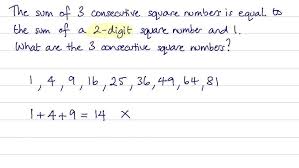 The sum of 3 consecutive square numbers is equal to
the sum of a 2-digit square number and 1.
What are the 3 consecutive square numbers?
1, 4, 9, 16, 25, 36, 49, 64, 81
1 + 4 + 9 = 14 ×